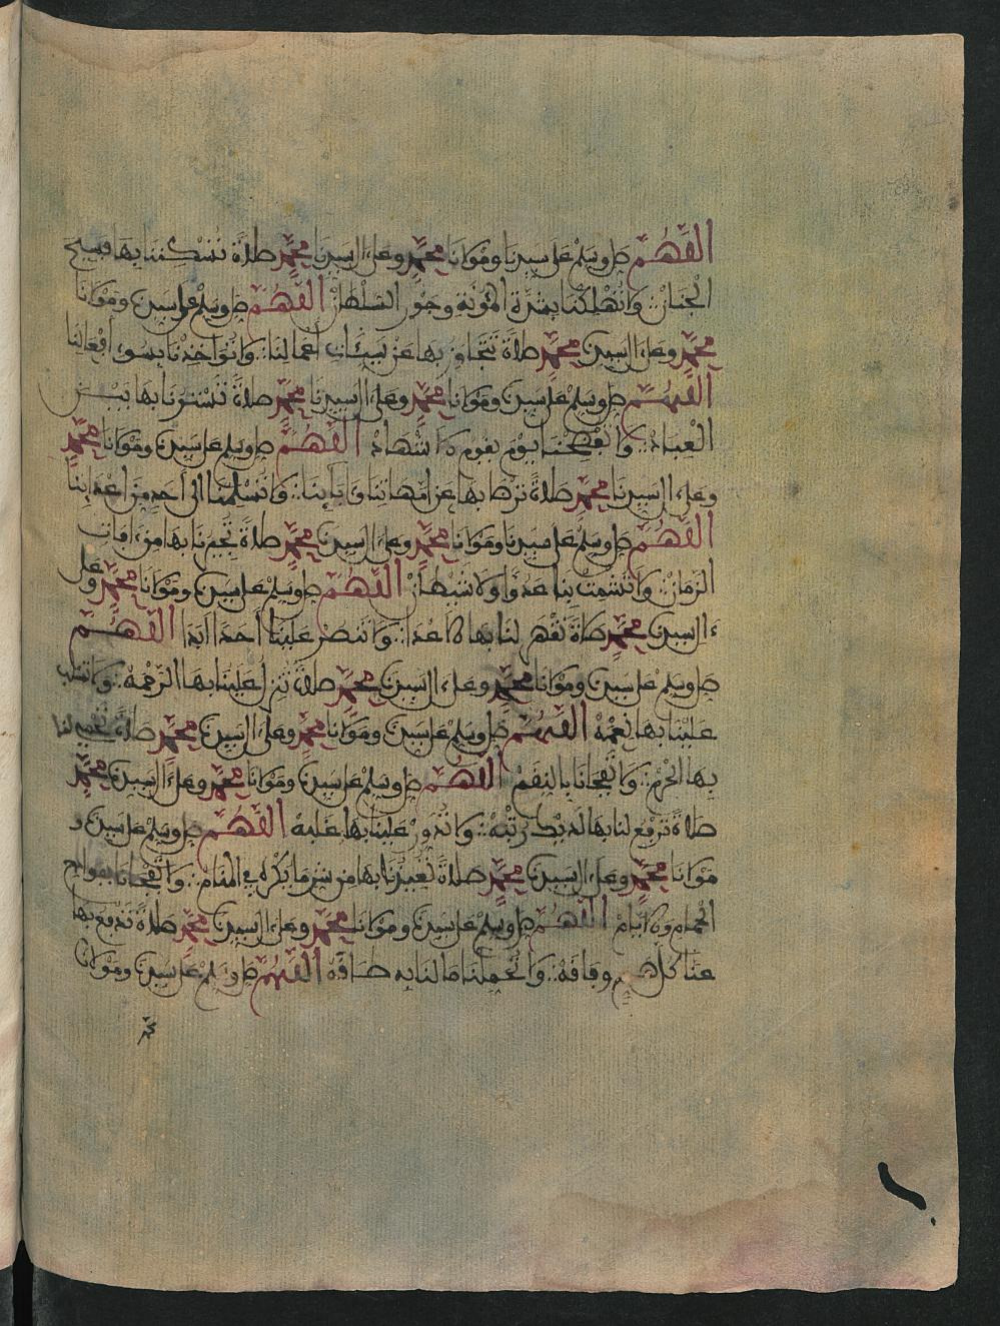 اللهم صل وسلم على سيدنا ومولانا محمد وعلى ءال سيدنا محمد صلاة تسكننا بها فسيح
الجنان ولا تهلكنا بشدة المؤنة وجور السلطان اللهم صل وسلم على سيدنا ومولانا
محمد وعلى ءال سيدنا محمد صلاة تتجاوز بها عن سيئات أعمالنا ولا تؤاخذنا بسوء أفعالنا
اللهم صل وسلم على سيدنا ومولانا محمد وعلى ءال سيدنا محمد صلاة تسترنا بها بين
العباد ولا تفضحنا يوم يقوم الاشهاد اللهم صل وسلم على سيدنا ومولانا محمد
وعلى ءال سيدنا محمد صلاة ترضى بها عن أمهاتنا وءابائنا ولا تسلمنا الى أحد من أعدائنا
اللهم صل وسلم على سيدنا ومولانا محمد وعلى ءال سيدنا محمد صلاة تجيرنا بها من ءافات
الزمان ولا تشمت بنا عدوا ولا شيطان اللهم صل وسلم على سيدنا ومولانا محمد وعلى
ءال سيدنا محمد صلاة تقهر لنا بها الاعدا ولا تنصر علينا أحدا ابدا اللهم
صل وسلم على سيدنا ومولانا محمد وعلى ءال سيدنا محمد صلاة تنزل علينا بها الرحمة ولا تسلب
علينا بها نعمة اللهم صل وسلم على سيدنا ومولانا محمد وعلى ءال سيدنا محمد صلاة لنا
بها ولا تفجانا بالنقم اللهم صل وسلم على سيدنا ومولانا محمد وعلى ءال سيدنا محمد
صلاة ترفع لنا بها لديك رتبة ولا تدور علينا بها غلبة اللهم صل وسلم على سيدنا و
مولانا محمد وعلى ءال سيدنا محمد صلاة تعيذنا بها من شر ما يكره في المنام ولا تفجانا
الحمام والايام اللهم صل وسلم على سيدنا ومولانا محمد وعلى ءال سيدنا محمد صلاة تدفع بها
عنا كل هم وفاقة ولا تحملنا ما لنا به طاقة اللهم صل وسلم على سيدنا ومولانا
محمد